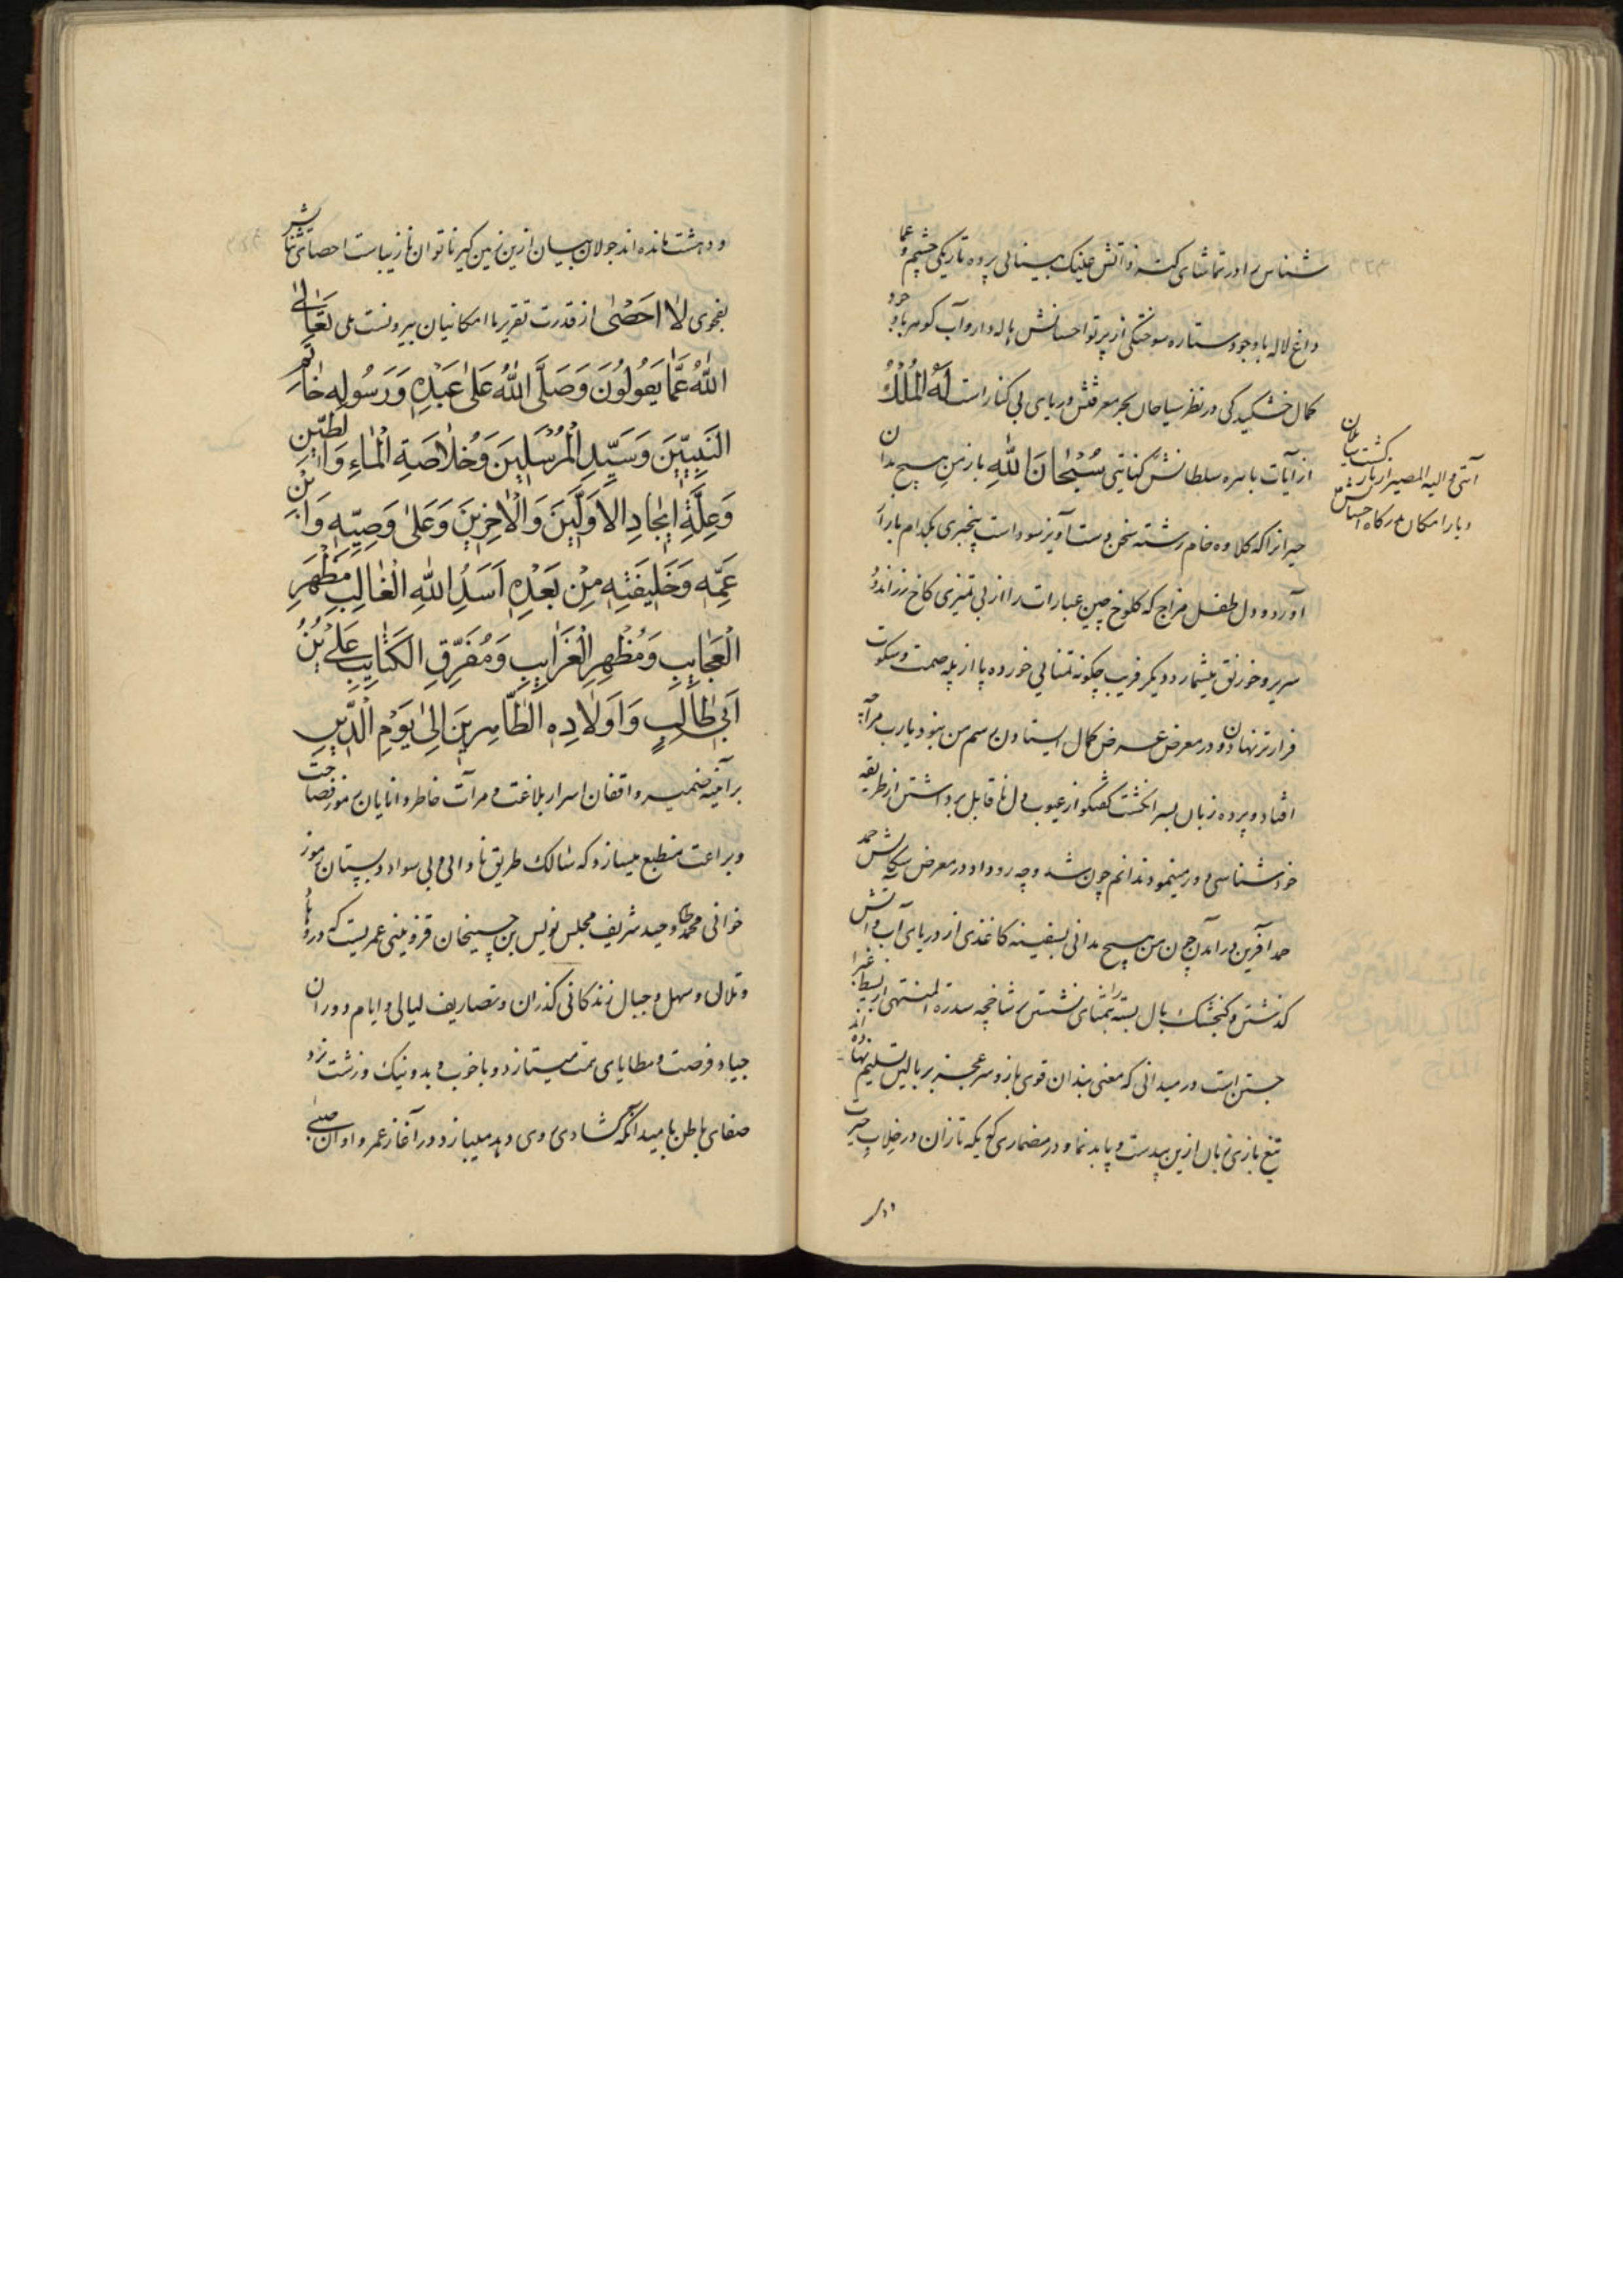 شناس را در تماشای کنه ذاتش عینک بینائی پرده تاریکی چشم و
داغ لاله با وجود ستاره سوختگی از پرتو احسانش هاله دار و آب گوهر با وجود
کمال خشکیدگی در نظر سیاحان بحر معرفتش دریای بی کنار است لَهُ الْمُلْكُ
از آیات باهره سلطانش کنایتی سُبْحَانَ اللهِ بار من هیچ مدان
حیرانرا که کلاوه خام رشته سخن دست آویز سوداست بیخبری بکدام بازار
آورده و دل طفل مزاج که کلوخ چین عبارات را از بی تمیزی کاخ زراندود
سریر و خورنق میشمارد دیگر فریب چگونه تمنائی خورده پا از پله صمت و سکوت
فراتر نهادن و در معرض عرض کمال ایستادن رسم من نبود یارب مرا چه
افتاد و پرده زبان بسر انگشت گفتگو از عیوب دل ناقابل برداشتن از طریقه
خود شناسی دور مینمود ندانم چون شد و چه رو داد در معرض ستایش
حمد آفرین در آمدن چون من هیچ مدانی بسفینه کاغذی از دریای آب و آتش
گذشتن و گنجشک بال بسته را تمنای نشستن بر شاخچه سدرة المنتهی از بسیط غبرا
جستن است در میدانی که معنی بندان قوی بازو سر عجز بر بالین تسلیم نهاده اند
تیغ بازی زبان ازین بیدست و پا بدنما و در مضماری که یکه تازان در خلاب حیرت
آیتی و الیه المصیر از بار
و بار امکان بدرگاه احسانش
و دهشت مانده اند جولان بیان ازین زمین گیر ناتوان نازیباست احصای ثنایش
بفحوی لا احصی از قدرت تقریر ما امکانیان بیرونست بلی تَعَالَى
اللهُ عَمَّا يَقُولُونَ وَصَلَّى اللهُ عَلَى عَبْدِهِ وَرَسُولِهِ خَاتَمِ
النَّبِيِّينَ وَسَيِّدِ الْمُرْسَلِينَ وَخُلَاصَةِ الْمَاءِ وَالطِّينِ
وَعِلَّةِ إِيجَادِ الْأَوَّلِينَ وَالْآخِرِينَ وَعَلَى وَصِيِّهِ وَابْنِ
عَمِّهِ وَخَلِيفَتِهِ مِنْ بَعْدِهِ أَسَدُ اللهِ الْغَالِبِ مَظْهَرِ
الْعَجَايِبِ وَمُظْهِرِ الْغَرَايِبِ وَمُفَرِّقِ الْكَتَايِبِ عَلِيِّ بْنِ
أَبِي طَالِبٍ وَأَوْلَادِهِ الطَّاهِرِينَ إِلَى يَوْمِ الدِّينِ
بر آئینه ضمیر واقفان اسرار بلاغت و مرآت خاطر دانایان رموز فصاحت
و براعت منطبع میسازد که سالک طریق نادانی و بی سواد دبستان رموز
خوانی محمد طاهر وحید شریف مجلس نویس بن حسینخان قزوینی عمریست که در وهاد
و تلال و سهل و جبال زندگانی گذران و تصاریف لیالی و ایام دوران
جیاد فرصت و مطایای همت میتازد و با خوب و بد و نیک و زشت نرد
صفای باطن بامید آنکه گشادی روی دهد میبازد در آغاز عمر و اوان صبی